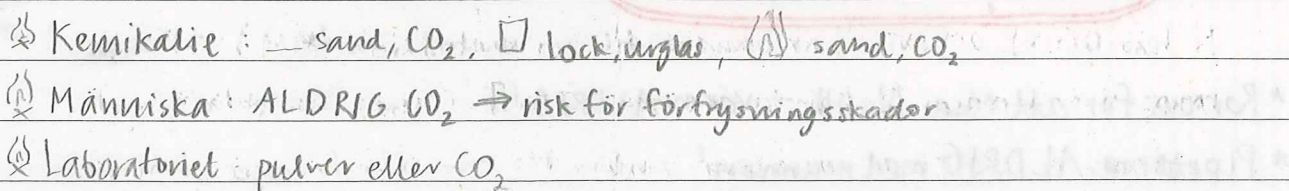 Kemikalie : _ sand, CO₂, lock, urglas, sand, CO₂
Människa : ALDRIG CO₂ ⇒ risk för förfrysningsskador
Laboratoriet pulver eller CO₂